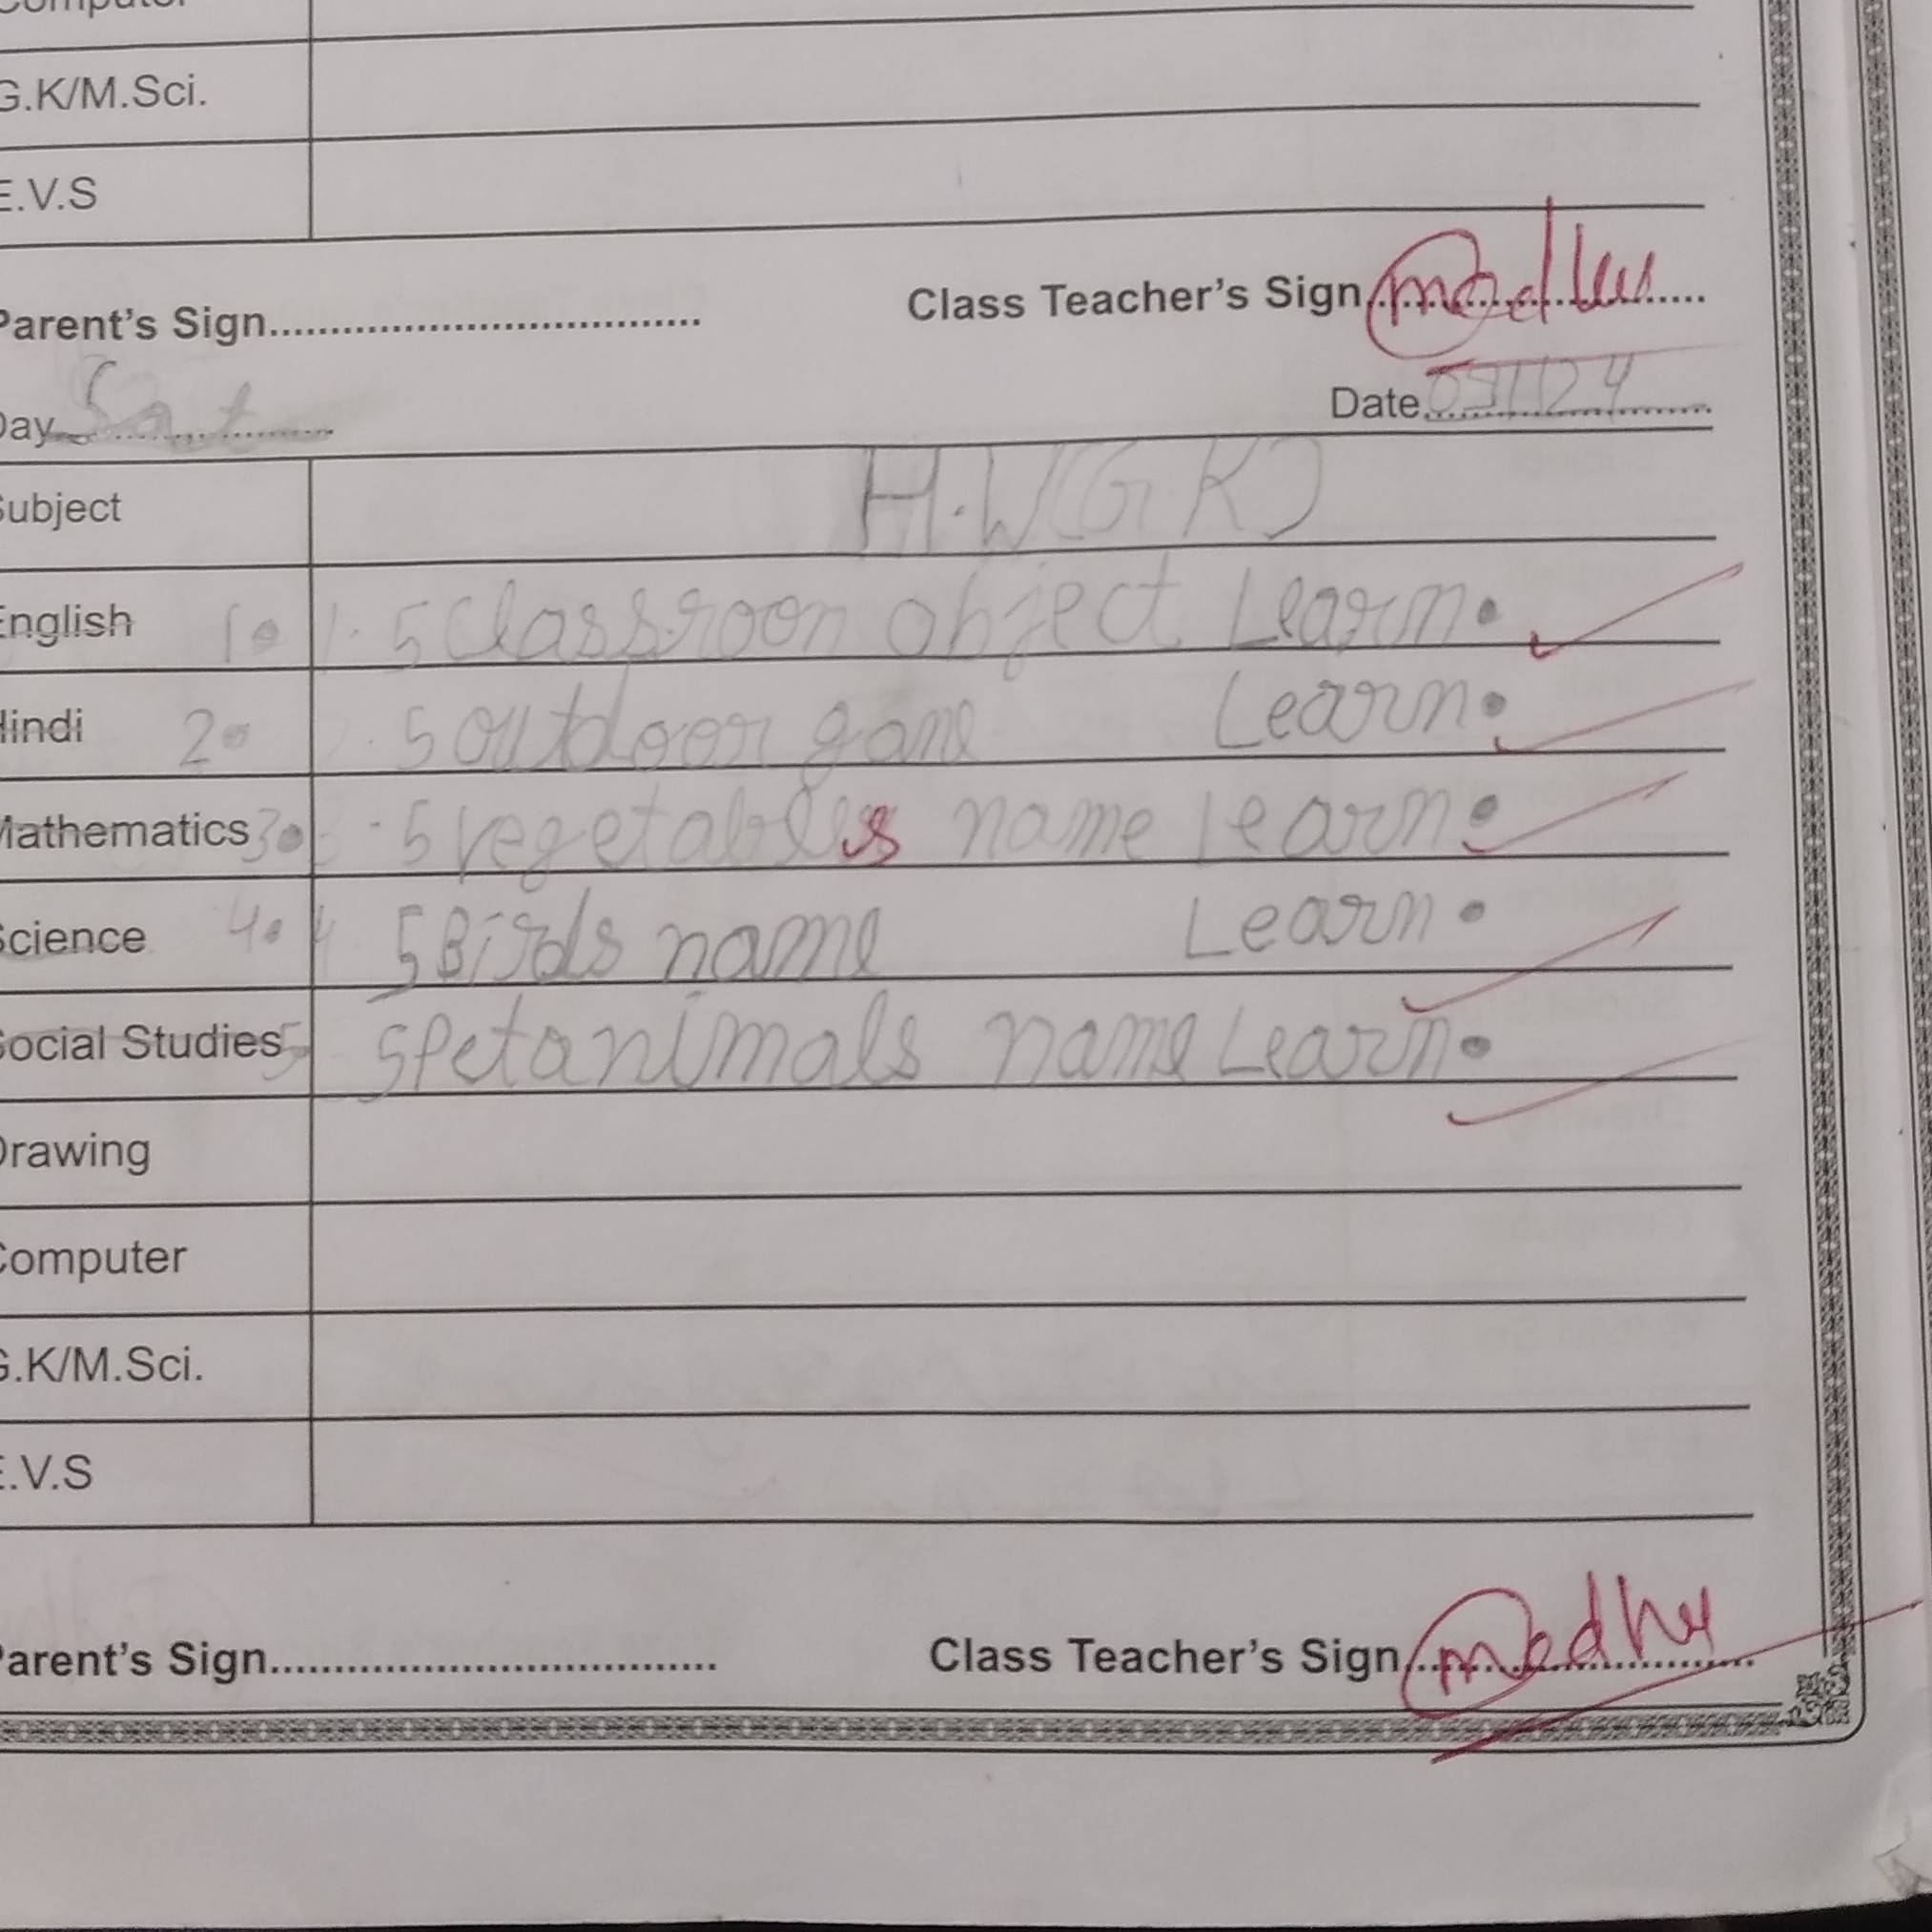 G.K/M.Sci.
E.V.S
Parent's Sign.................................... Class Teacher's Sign madhu
Day Sat Date
Subject H.W(G.K)
English 1. 1. 5 Classroon object Learn.
Hindi 2. . 5 outdoor game Learn.
Mathematics 3. 3. 5 vegetables name learn.
Science 4. 4. 5 Birds name Learn.
Social Studies 5. 5 Petanimals name Learn.
Drawing
Computer
G.K/M.Sci.
E.V.S
Parent's Sign.................................... Class Teacher's Sign madhu